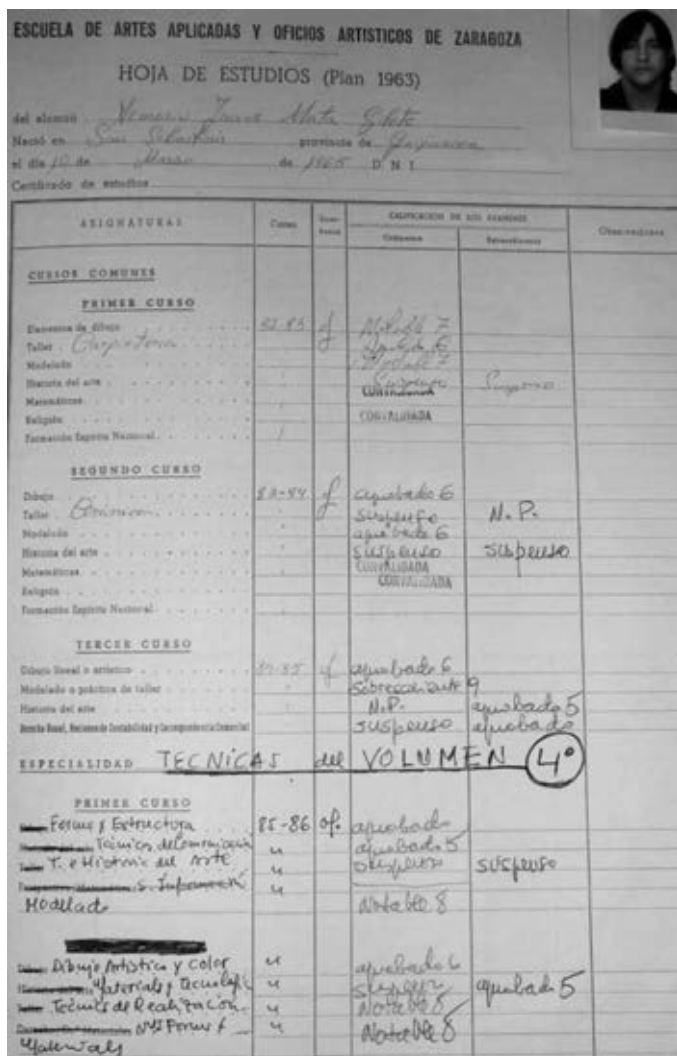 ESCUELA DE ARTES APLICADAS Y OFICIOS ARTISTICOS DE ZARAGOZA
HOJA DE ESTUDIOS (Plan 1963)
del alumno
Nació en San Sebastian provincia de Guipuzcoa
el día 10 de Marzo de 1965 D N I
Certificado de estudios
ASIGNATURAS Curso CALIFICACION DE LOS EXAMENES Observaciones
Ordinarios Extraordinarios
CURSOS COMUNES
PRIMER CURSO
Elementos de dibujo 82-83 of Notable 7
Taller Carpinteria Aprobado 6
Modelado Notable 7
Historia del arte Suspenso Suspenso
Matemáticas CONVALIDADA
Religión CONVALIDADA
Formación Espíritu Nacional
SEGUNDO CURSO
Dibujo 83-84 of aprobado 6
Taller suspenso N.P.
Modelado aprobado 6
Historia del arte suspenso suspenso
Matemáticas CONVALIDADA
Religión CONVALIDADA
Formación Espíritu Nacional
TERCER CURSO
Dibujo lineal o artístico 84-85 of aprobado 6
Modelado o práctica de taller sobresaliente 9
Historia del arte N.P. aprobado 5
Derecho Usual, Nociones de Contabilidad y Correspondencia Comercial suspenso aprobado
ESPECIALIDAD TECNICAS del VOLUMEN 4º
PRIMER CURSO
Forma y Estructura 85-86 of. aprobado
Técnicas de Comunicación " aprobado 5
T. e Historia del Arte " suspenso suspenso
S. Información "
Modelado Notable 8
Dibujo Artístico y Color " aprobado 6
Materiales y Tecnología " suspenso aprobado 5
Técnicas de Realización " Notable 8
Forma y " Notable 8
Materiales